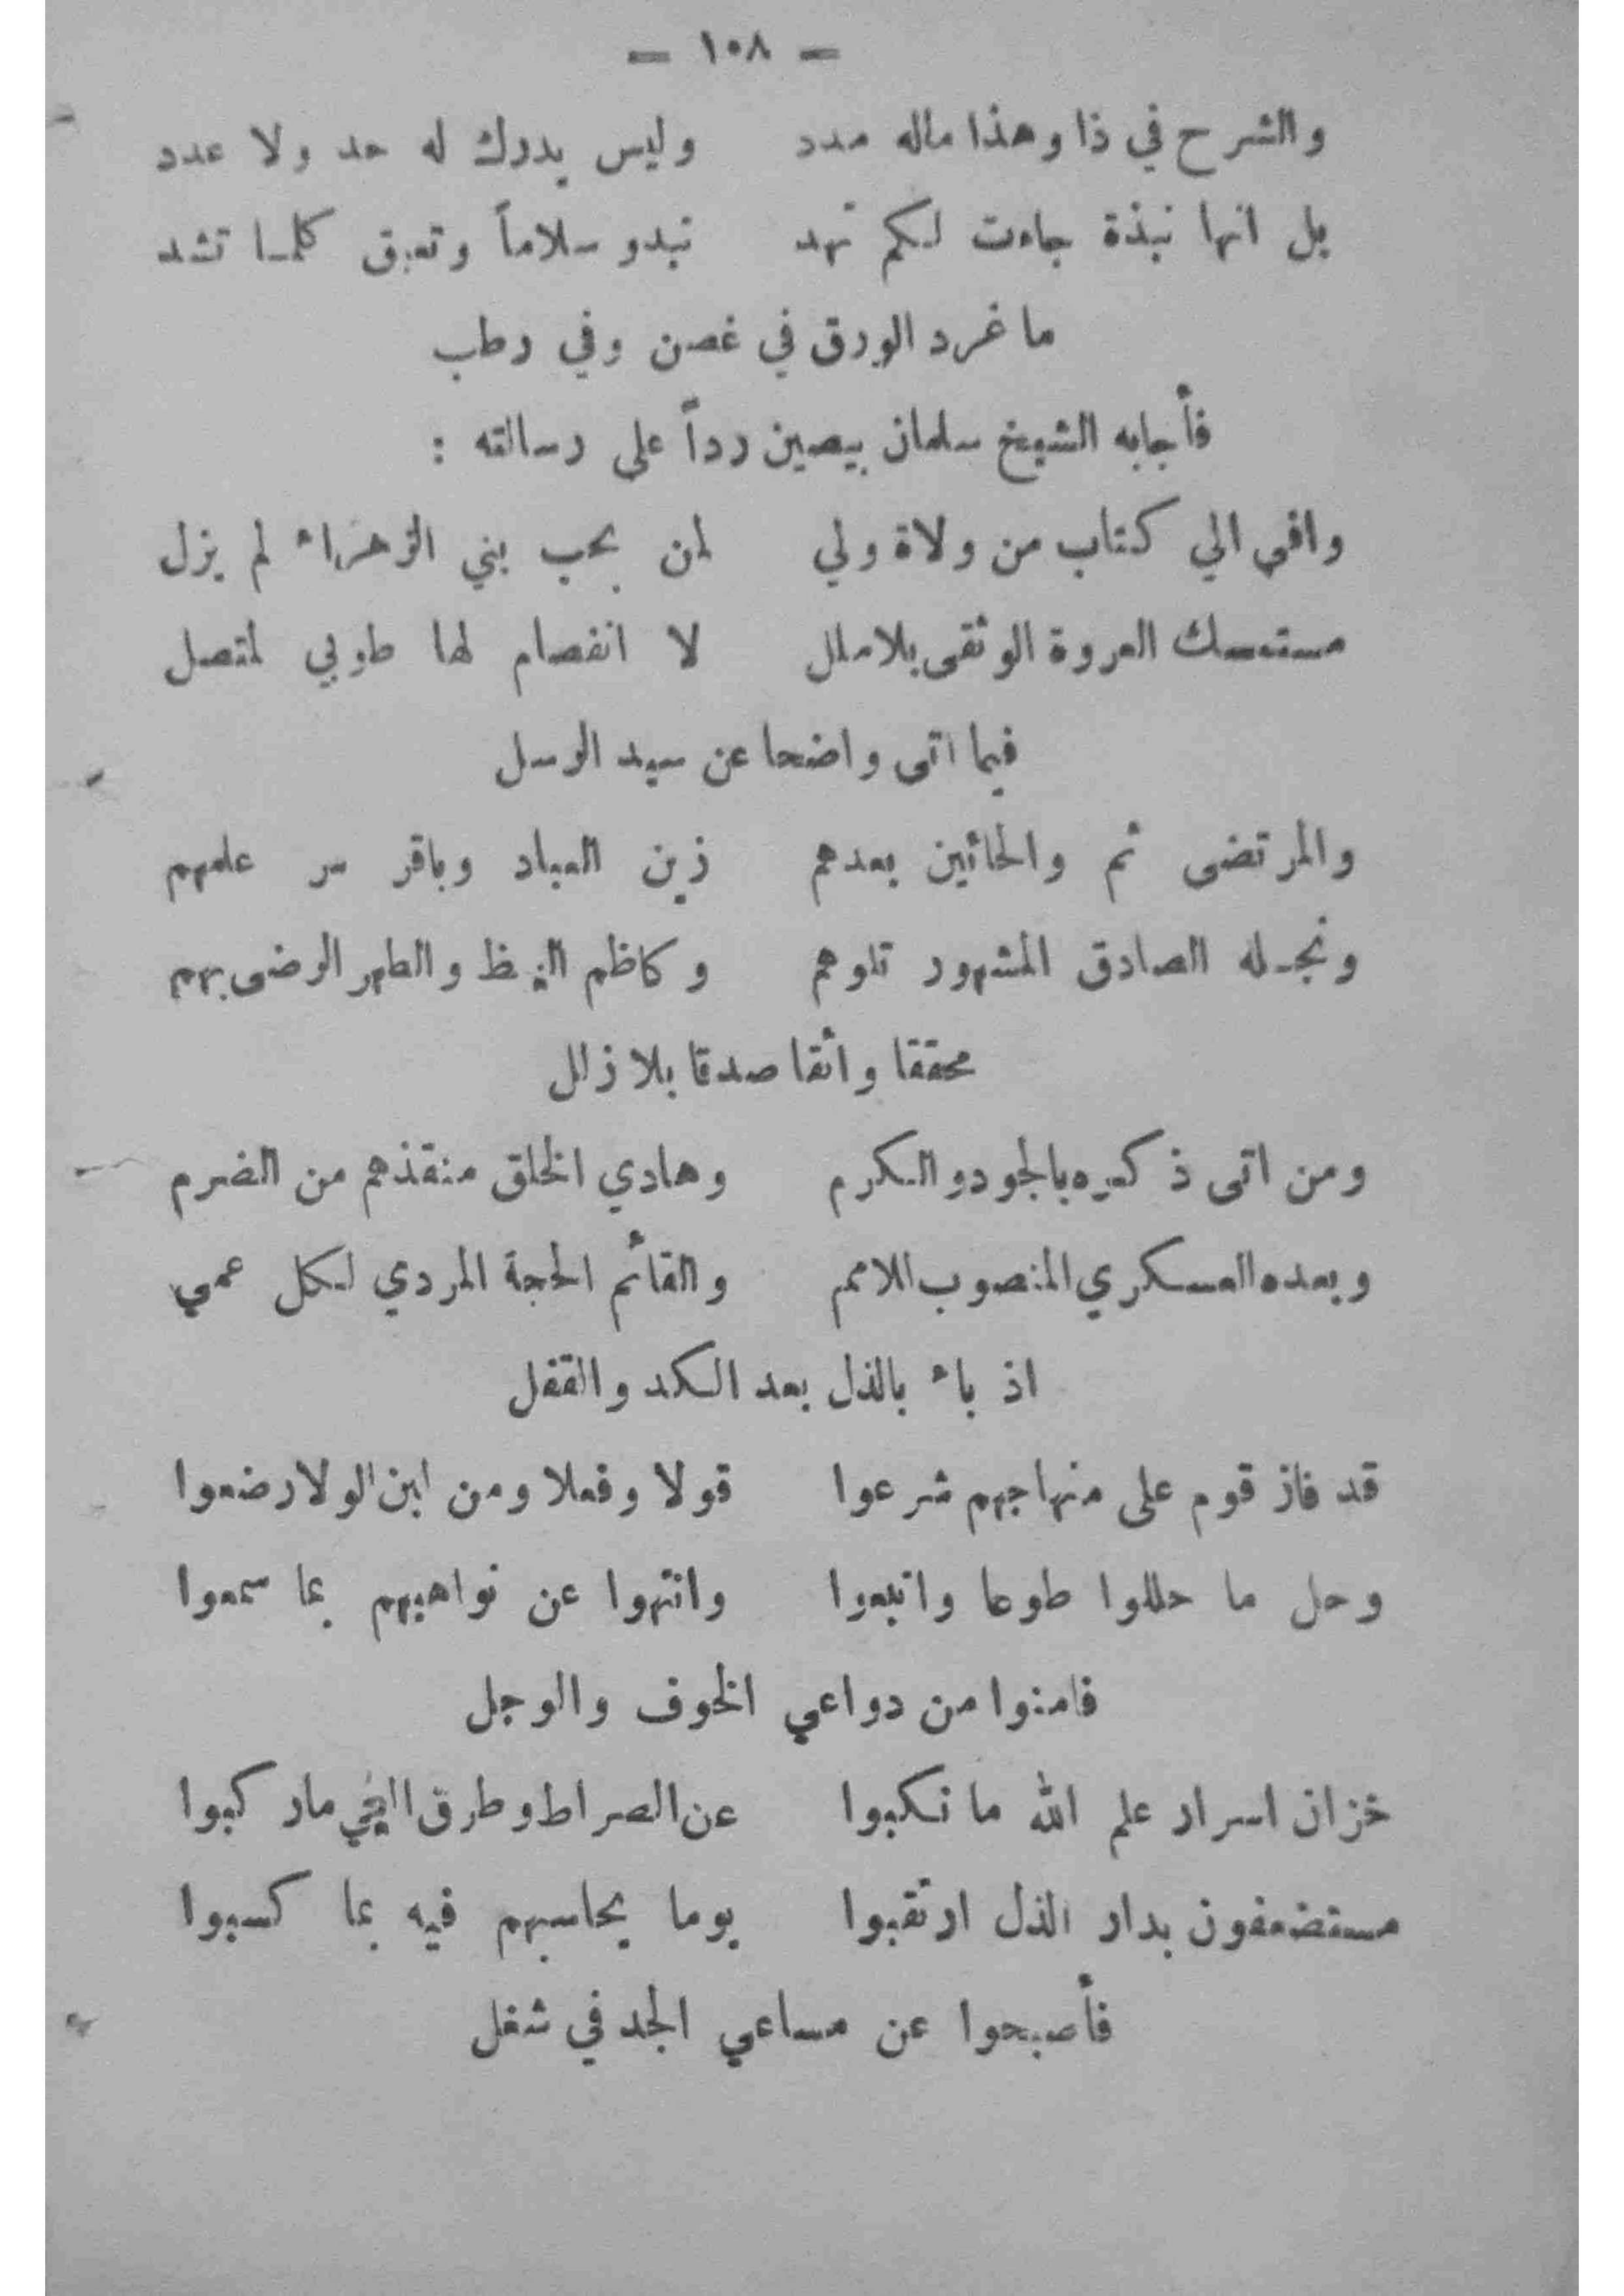 — ١٠٨ —
والشرح في ذا وهذا ماله مدد وليس يدرك له حد ولا عدد
بل انها نبذة جاءت لكم تهد تبدو سلاماً وتعبق كلما تشد
ما غرد الورق في غصن وفي رطب
فأجابه الشيخ سلمان بيصين رداً على رسالته :
وافى الي كتاب من ولاة ولي لمن بحب بني الزهراء لم يزل
مستمسك العروة الوثقى بلا ملل لا انفصام لها طوبي لمتصل
فيما اتى واضحا عن سيد الرسل
والمرتضى ثم والحائين بعدهم زين العباد وباقر سر علمهم
ونجله الصادق المشهور تلوهم وكاظم الغيظ والطهر الرضى بهم
محققا واثقا صدقا بلا زلل
ومن اتى ذكره بالجود والكرم وهادي الخلق منقذهم من الضرم
وبعده العسكري المنصوب للامم والقائم الحجة المردي لكل عمي
اذ باء بالذل بعد الكد والقفل
قد فاز قوم على منهاجهم شرعوا قولا وفعلا ومن ابن الولا رضعوا
وحل ما حللوا طوعا واتبعوا وانتهوا عن نواهيهم بما سمعوا
فامنوا من دواعي الخوف والوجل
خزان اسرار علم الله ما نكبوا عن الصراط وطرق الغي ما ركبوا
مستضعفون بدار الذل ارتقبوا يوما يحاسبهم فيه بما كسبوا
فأصبحوا عن مساعي الجد في شغل